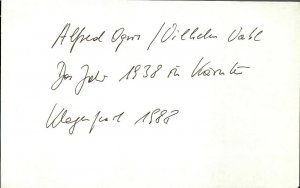 Alfred Ogris / Wilhelm Wadl
Das Jahr 1938 in Kärnten
Klagenfurt 1988